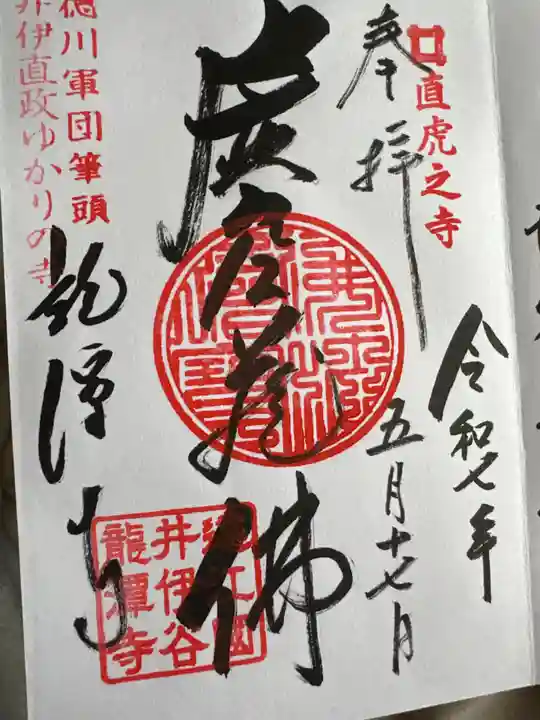 直虎之寺
奉拝
令和七年
五月十七日
虚空蔵佛
龍潭寺
徳川軍団筆頭
井伊直政ゆかりの寺
遠江國
井伊谷
龍潭寺